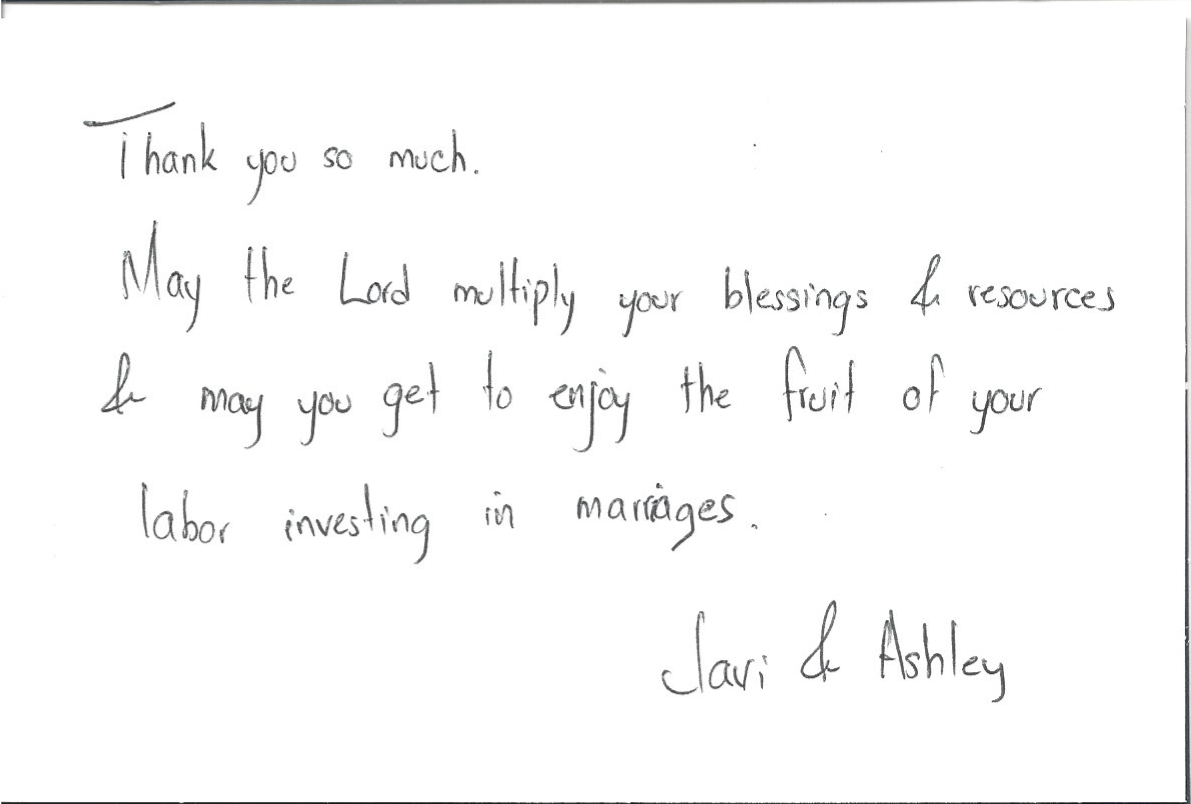 Thank you so much.
May the Lord multiply your blessings & resources
& may you get to enjoy the fruit of your
labor investing in marriages.
Javi & Ashley